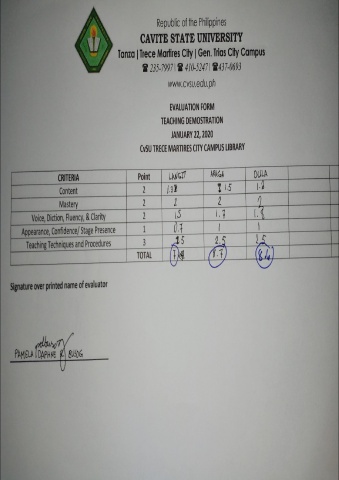 Republic of the Philippines
CAVITE STATE UNIVERSITY
Tanza | Trece Martires City | Gen. Trias City Campus
☎ 235-7997| ☎ 410-5247| ☎437-0693
www.cvsu.edu.ph
EVALUATION FORM
TEACHING DEMOSTRATION
JANUARY 22, 2020
CvSU TRECE MARTIRES CITY CAMPUS LIBRARY
CRITERIA Point LANGIT DULA
Content 2 1.5 1.8
Mastery 2 2 2 2
Voice, Diction, Fluency, & Clarity 2 1.5 1.7 1.8
Appearance, Confidence/ Stage Presence 1 0.7 1 1
Teaching Techniques and Procedures 3 2.5 2.5
TOTAL 8.7
Signature over printed name of evaluator
PAMELA DAPHNE R. BUSOG